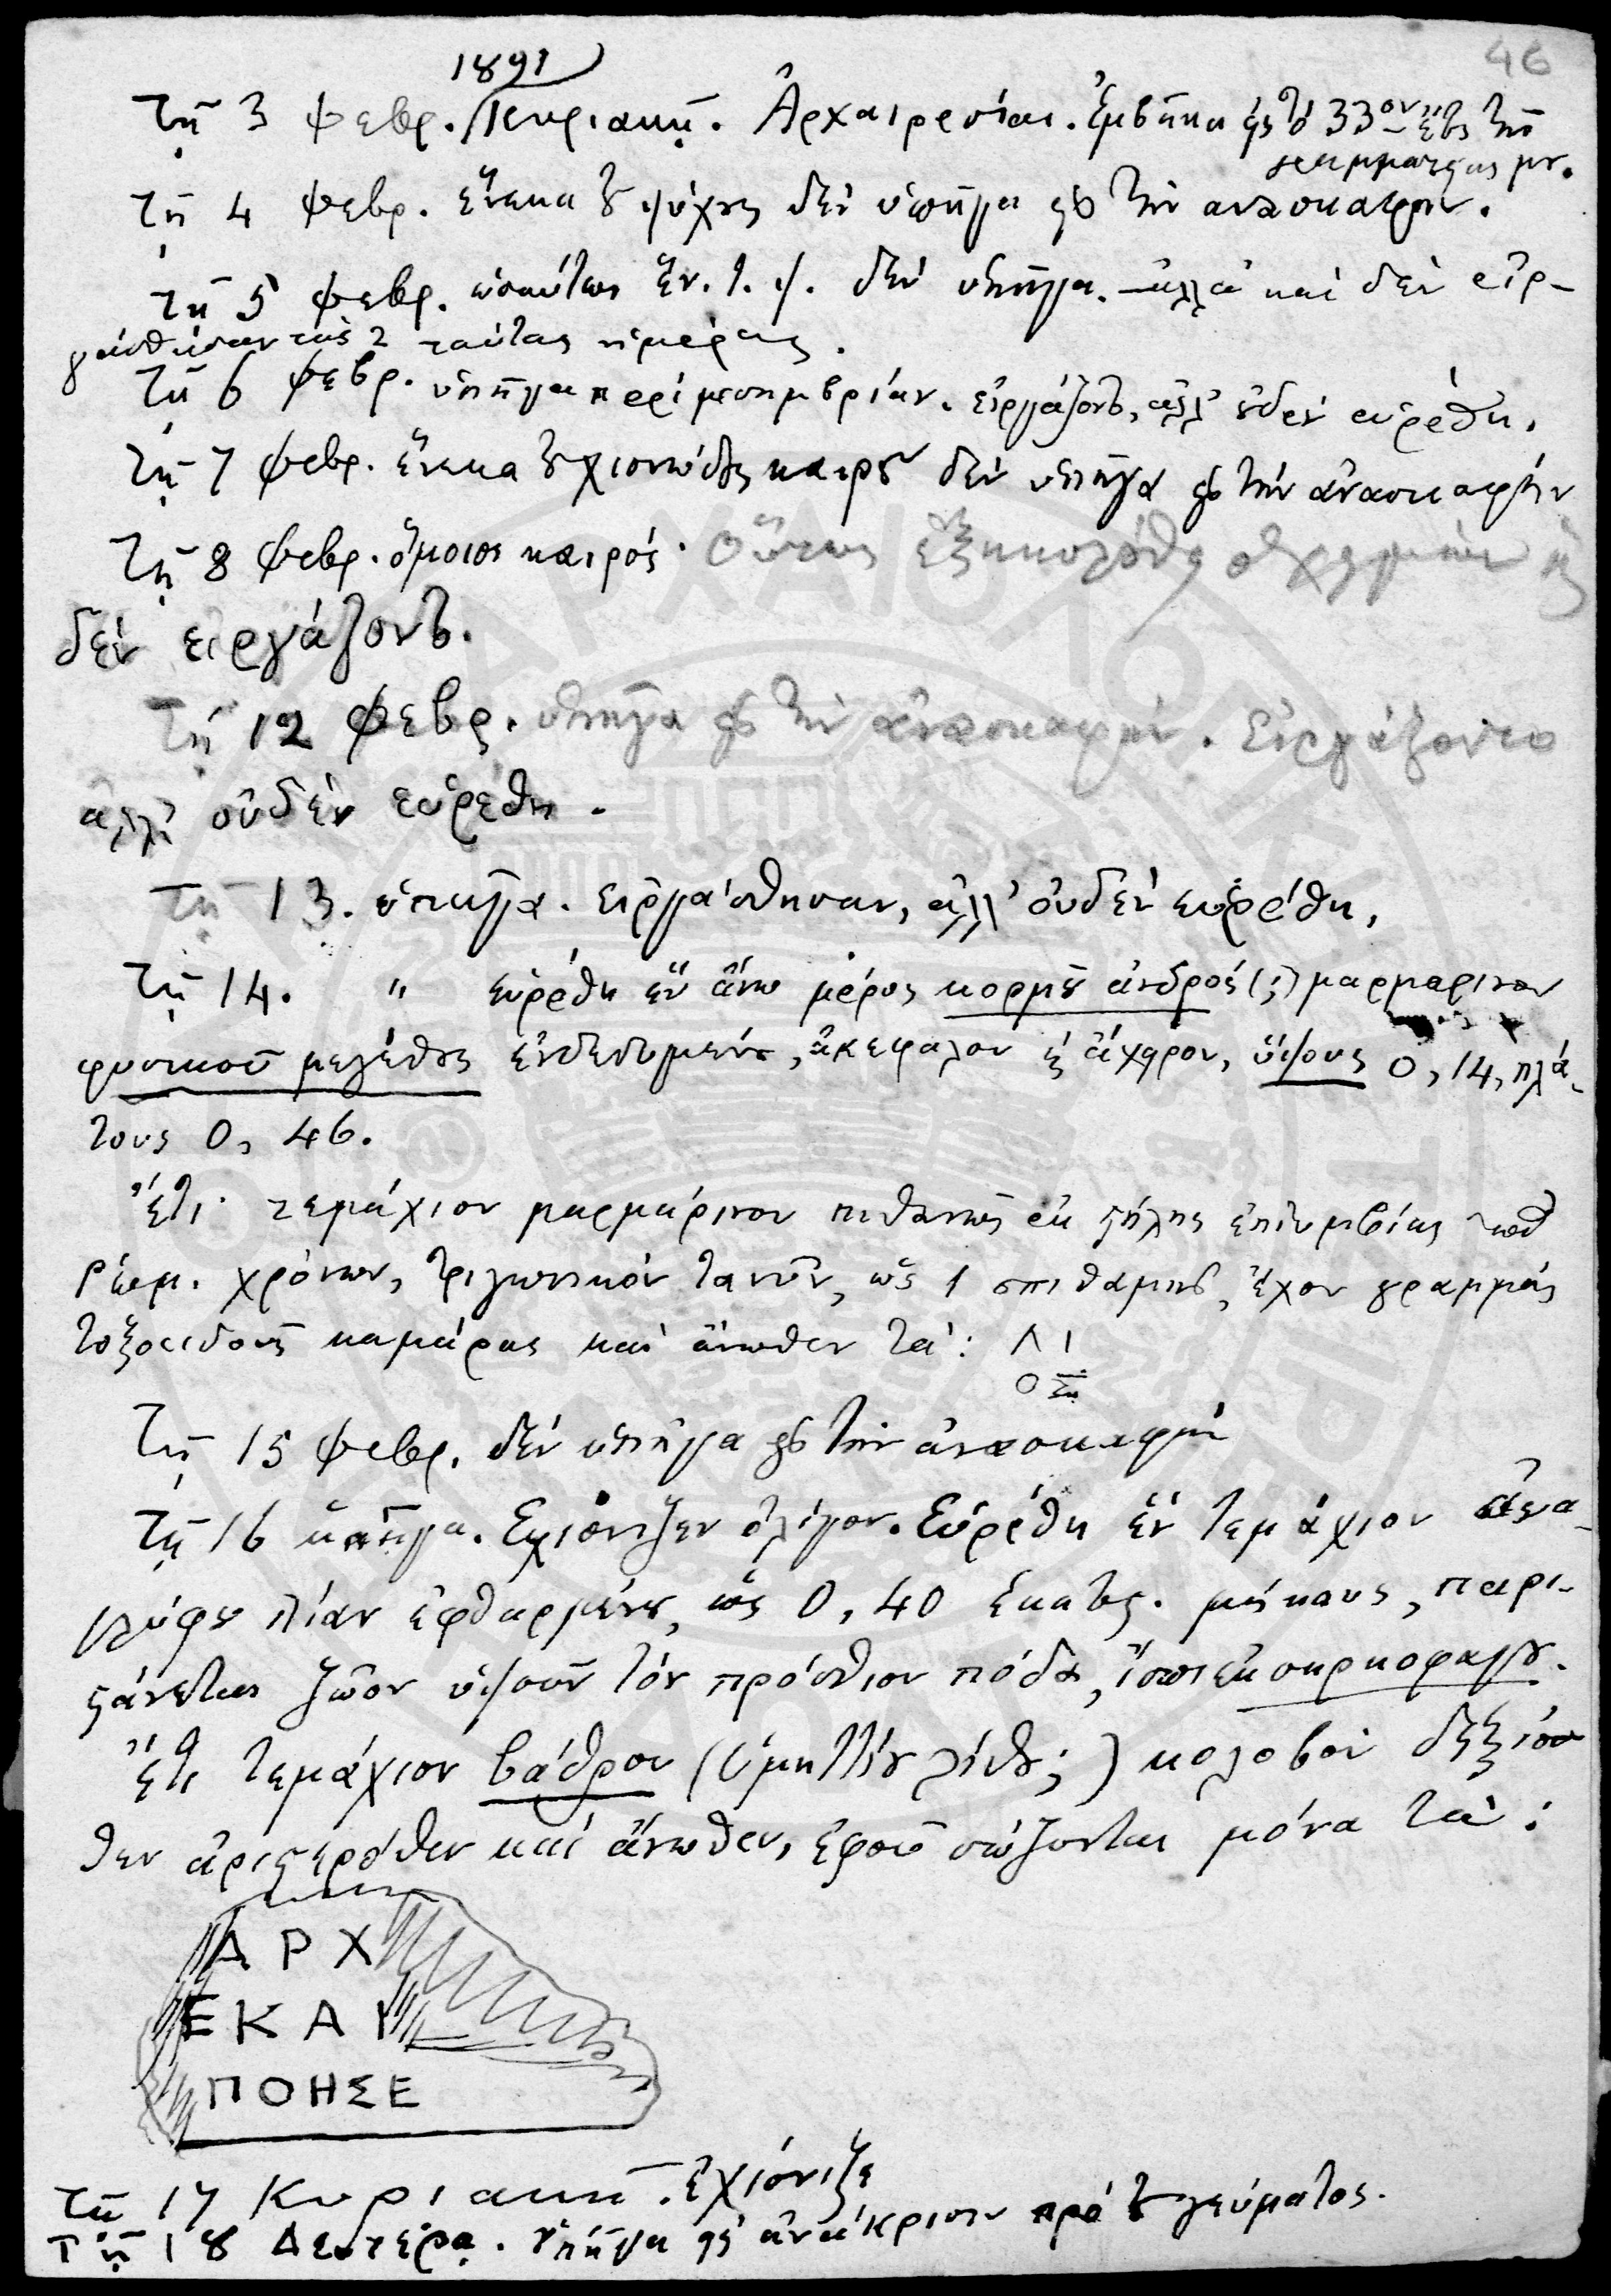 46
1891
τῇ 3 Φεβρ. Κυριακῇ. Ἀρχαιρεσίαι. Ἐμβῆκα εἰς τὸ 33ον ἔτος τῆς
γραμματείας μου.
τῇ 4 Φεβρ. ἕνεκα τοῦ ψύχους δὲν ὑπῆγα εἰς τὴν ανασκαφήν.
τῇ 5 Φεβρ. ὡσαύτως ἕν. τ. ψ. δὲν ὑπῆγα. ἀλλὰ καὶ δὲν εἰρ-
γάσθησαν τὰς 2 ταύτας ἡμέρας.
τῇ 6 Φεβρ. ὑπῆγα περὶ μεσημβρίαν. εἰργάζοντο, ἀλλ' οὐδὲν εὑρέθη.
τῇ 7 Φεβρ. ἕνεκα τοῦ χιονώδους καιροῦ δὲν ὑπῆγα εἰς τὴν ἀνασκαφήν
τῇ 8 Φεβρ. ὅμοιος καιρός. Οὕτως ἐξηκολούθη ὁ χειμὼν καὶ
δὲν εἰργάζοντο.
τῇ 12 Φεβρ. ὑπῆγα εἰς τὴν ἀνασκαφήν. Εἰργάζοντο
ἀλλ' οὐδὲν εὑρέθη.
τῇ 13. ὑπῆγα. εἰργάσθησαν, ἀλλ' οὐδὲν εὑρέθη,
τῇ 14. " εὑρέθη ἓν ἄνω μέρος κορμοῦ ἀνδρός (;) μαρμαρινον
φυσικοῦ μεγέθους ἐνδεδυμένου, ἀκέφαλον καὶ ἄχειρον, ὕψους 0,14, πλά-
τους 0,46.
Ἔτι τεμάχιον μαρμάρινον πιθανῶς ἐκ στήλης ἐπιτυμβίας τῶν
Ρωμ. χρόνων, τριγωνικὸν τανῦν, ὡς 1 σπιθαμῆς, ἔχον γραμμὰς
τοξοειδοῦς καμάρας καὶ ἄνωθεν τά: Λ Ι
Ο Σ
Τῇ 15 Φεβρ. δὲν ὑπῆγα εἰς τὴν ἀνασκαφήν
τῇ 16 ὑπῆγα. Εχιόνιζεν ὀλίγον. Εὑρέθη ἓν τεμάχιον ἀνα-
γλύφου λίαν ἐφθαρμένου, ὡς 0,40 ἑκατοστ. μήκους, παρι-
στάνεται ζῶον ὑψοῦν τὸν πρόσθιον πόδα, ἴσως ἐκ σαρκοφαγου.
Ἔτι τεμάχιον βάθρου (ὑμηττίου λίθου;) κολοβὸν δεξιό-
θεν ἀριστερόθεν καὶ ἄνωθεν, ἐφ' οὗ σώζονται μόνα τά:
ΑΡΧ
ΕΚΑΙ
ΠΟΗΣΕ
τῇ 17 Κυριακῇ. ἐχιόνιζε
Τῇ 18 Δευτέρᾳ. Ὑπῆγα εἰς ἀνάκρισιν πρὸ τοῦ γεύματος.